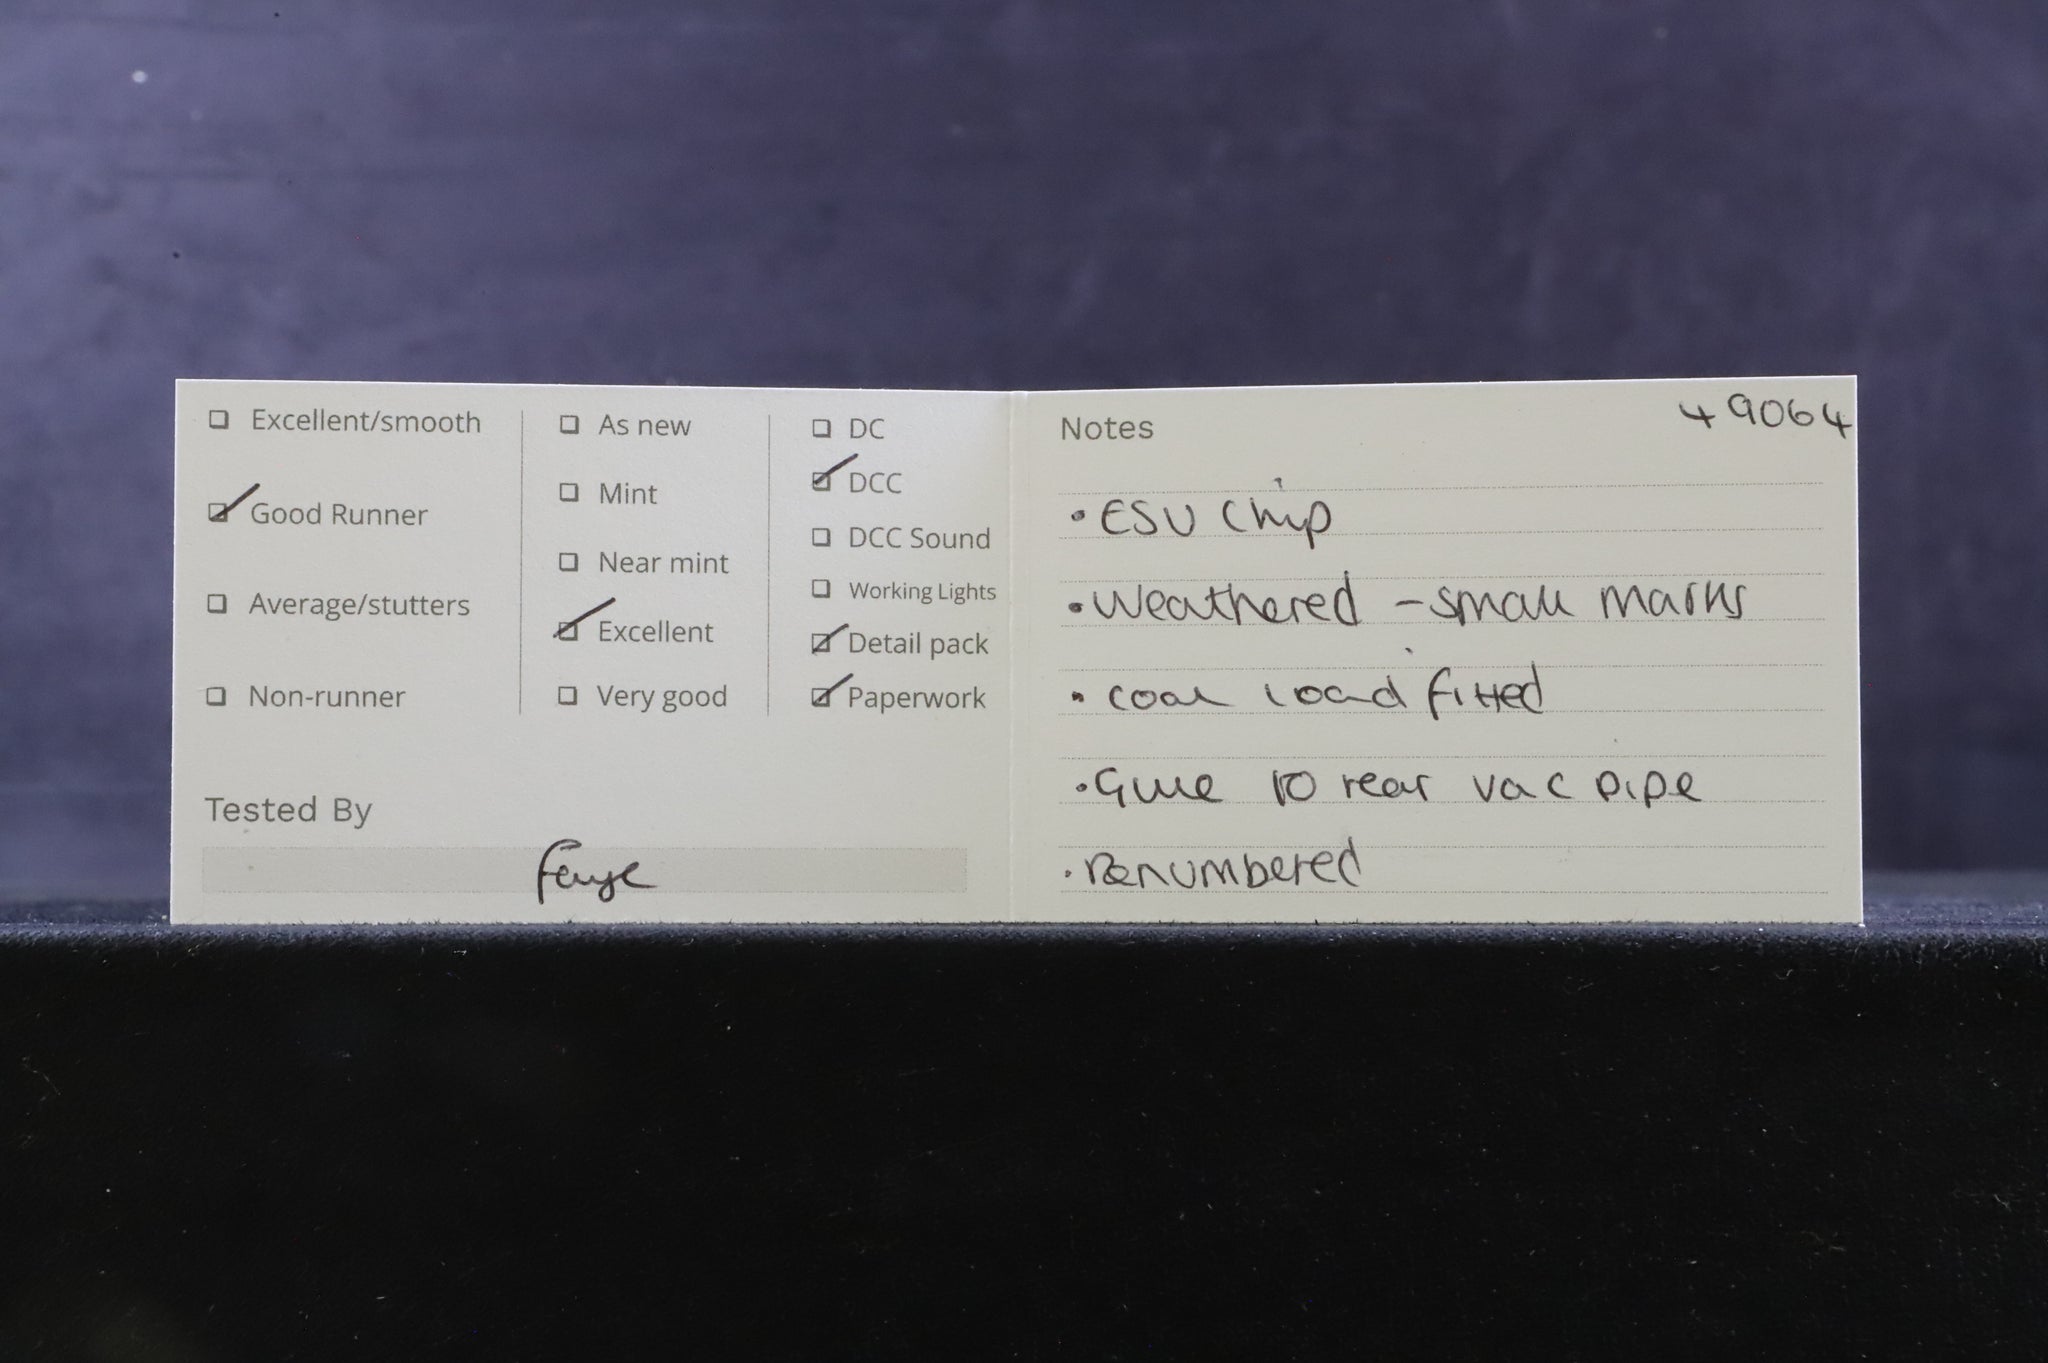 Excellent/smooth
Good Runner
Average/stutters
Non-runner
As new
Mint
Near mint
Excellent
Very good
DC
DCC
DCC Sound
Working Lights
Detail pack
Paperwork
Tested By
Faye
Notes
49064
• ESU Chip
• Weathered - small marks
• coal load fitted
• Glue to rear vac pipe
• Renumbered